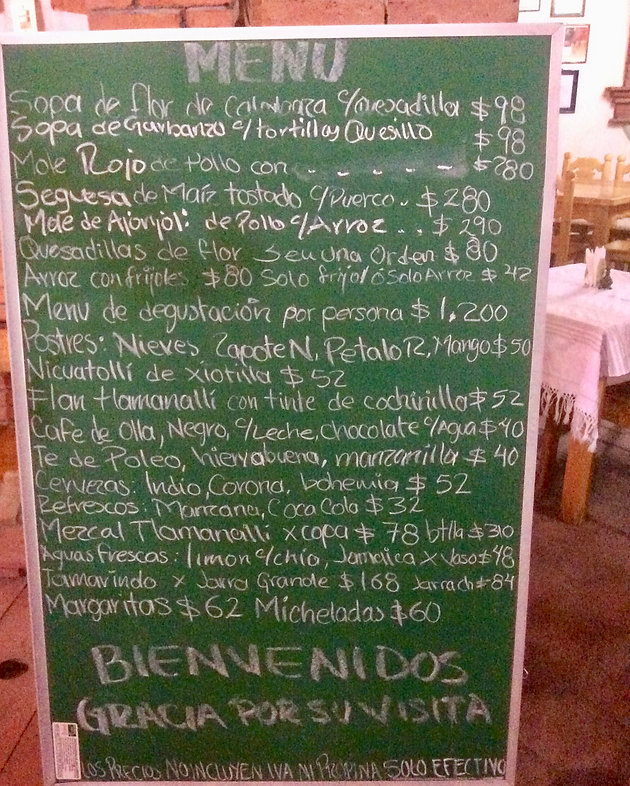 MENU
Sopa de flor de Calabaza c/quesadilla $98
Sopa de Garbanzo c/tortillas Quesillo $98
Mole Rojo de Pollo con . - - - - $280
Seguesa de Maíz tostado c/Puerco.. $280
Mole de Ajonjol: de Pollo c/Arroz .. $290
Quesadillas de flor Seu una Orden $80
Arroz con frijoles $80 Solo frijol ó Solo Arroz $42
Menu de degustación por persona $1,200
Postres: Nieves Zapote N, Petalo R, Mango $50
Nicuatolli de xiotilla $52
Flan tlamanalli con tinte de cochinilla $52
Cafe de Olla, Negro, c/Leche, Chocolate c/Agua $40
Te de Poleo, hierrabuena, manzanilla $40
Cervezas: Indio, Corona, bohemia $52
Refrescos: Manzana, Coca Cola $32
Mezcal Tlamanalli x copa $78 btlla $310
Aguas frescas: limon c/chia, Jamaica x Vaso $48
Tamarindo x Jarra Grande $168 Jarra ch $84
Margaritas $62 Micheladas $60
BIENVENIDOS
GRACIA POR SU VISITA
LOS PRECIOS NO INCLUYEN IVA NI PROPINA SOLO EFECTIVO